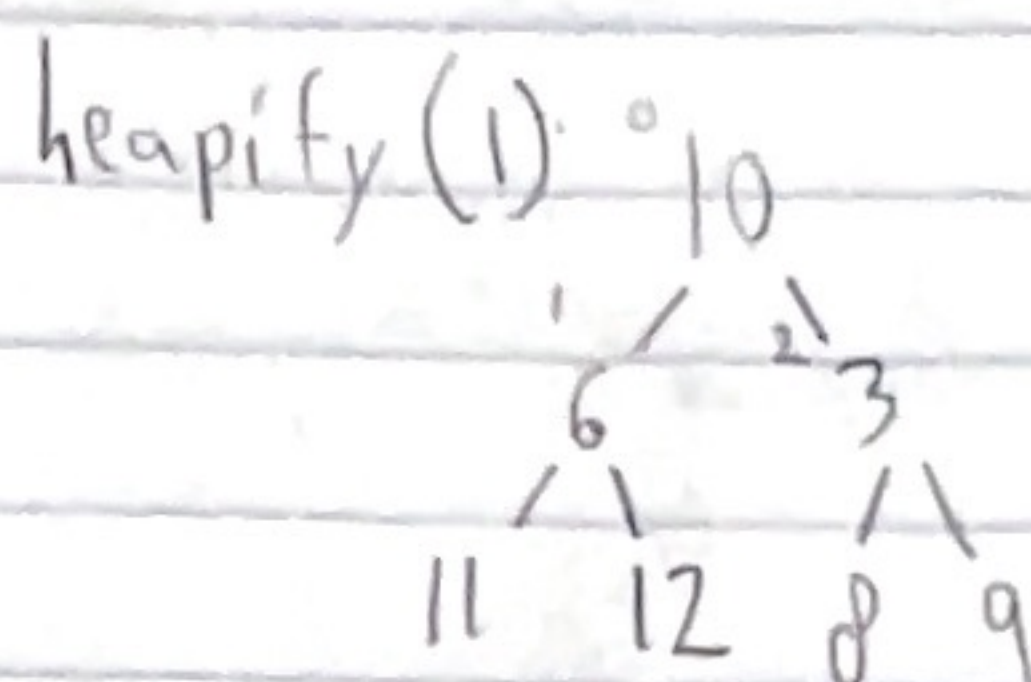 heapify (1). 0 10
1 2
6 3
11 12 8 9